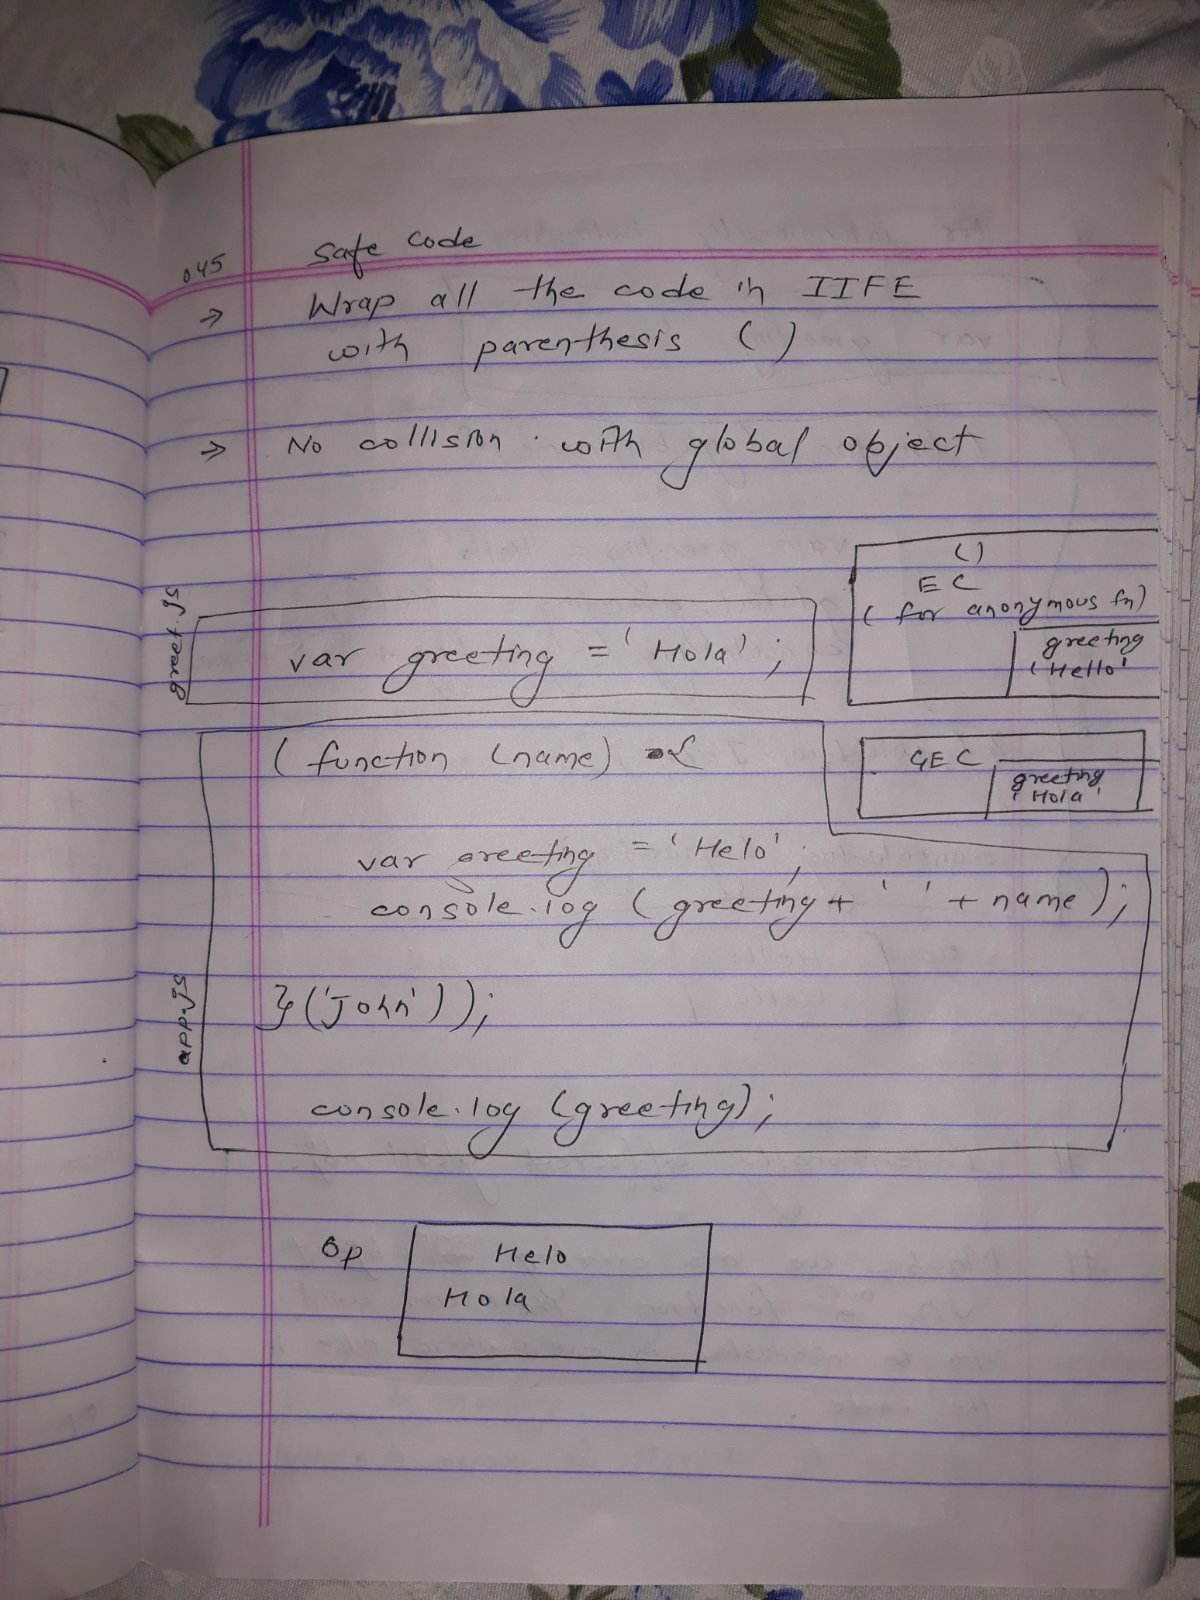 045 Safe Code
→ Wrap all the code in IIFE
with parenthesis ( )
→ No collision with global object
greet.js
var greeting = 'Hola';
( )
EC
( for anonymous fn)
greeting
'Hello'
GEC
greeting
'Hola'
app.js
(function (name) {
var greeting = 'Helo';
console.log (greeting + ' ' + name);
}('John'));
console.log (greeting);
Op
Helo
Hola